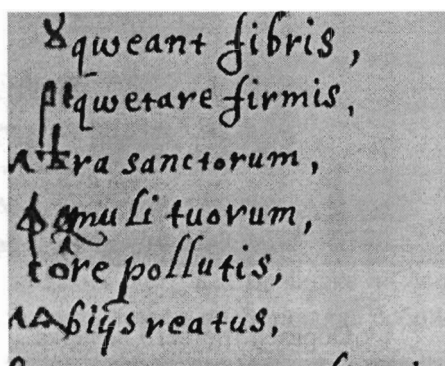 qweant fibris,
qwetare firmis,
ra sanctorum,
muli tuorum,
tore pollutis,
biijs reatus,